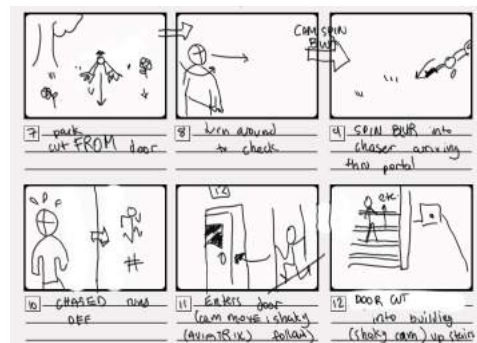 CAM SPIN
BLUR
7 park
cut FROM door
8 turn around
to check
9 SPIN BLUR into
chaser arriving
thru portal
10 CHASED runs
OFF
12
11 Enters door
(cam move : shaky
follow)
etc
12 DOOR CUT
into building
(shaky cam) up stairs